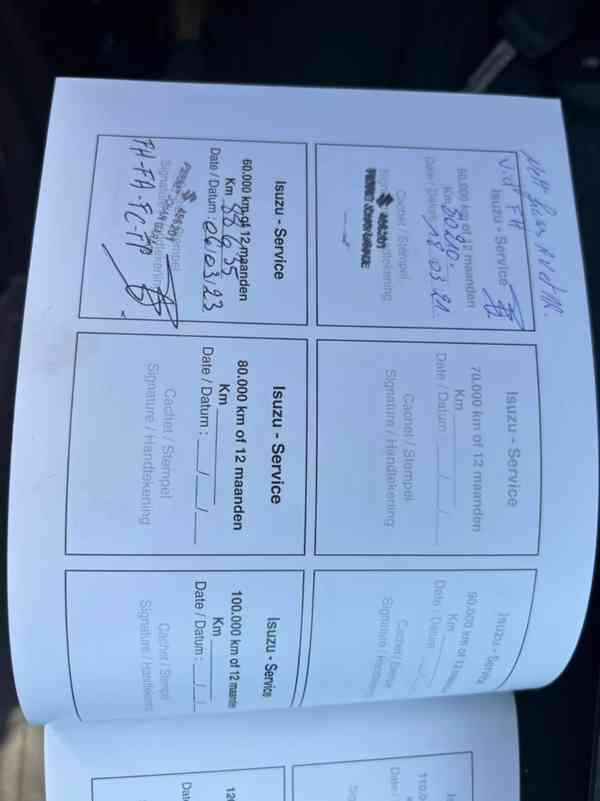 Isuzu - Service
50.000 km of 12 maanden
Km
Date / Datum : 18 03 21
Cachet / Stempel
Isuzu - Service
70.000 km of 12 maanden
Km
Date / Datum : __/__/__
Cachet / Stempel
Signature / Handtekening
Isuzu - Servic
90.000 km of 12
Km
Date / Datum
Cachet / Stempe
Signature / Handtekeni
Isuzu - Service
60.000 km of 12 maanden
Km 88635
Date / Datum : 06/03/23
FH-FA-FC-FP
Isuzu - Service
80.000 km of 12 maanden
Km
Date / Datum : __/__/__
Cachet / Stempel
Signature / Handtekening
Isuzu - Service
100.000 km of 12 maande
Km
Date / Datum : __/__/
Cachet / Stempel
Signature / Handtekeni
110.0
Date /